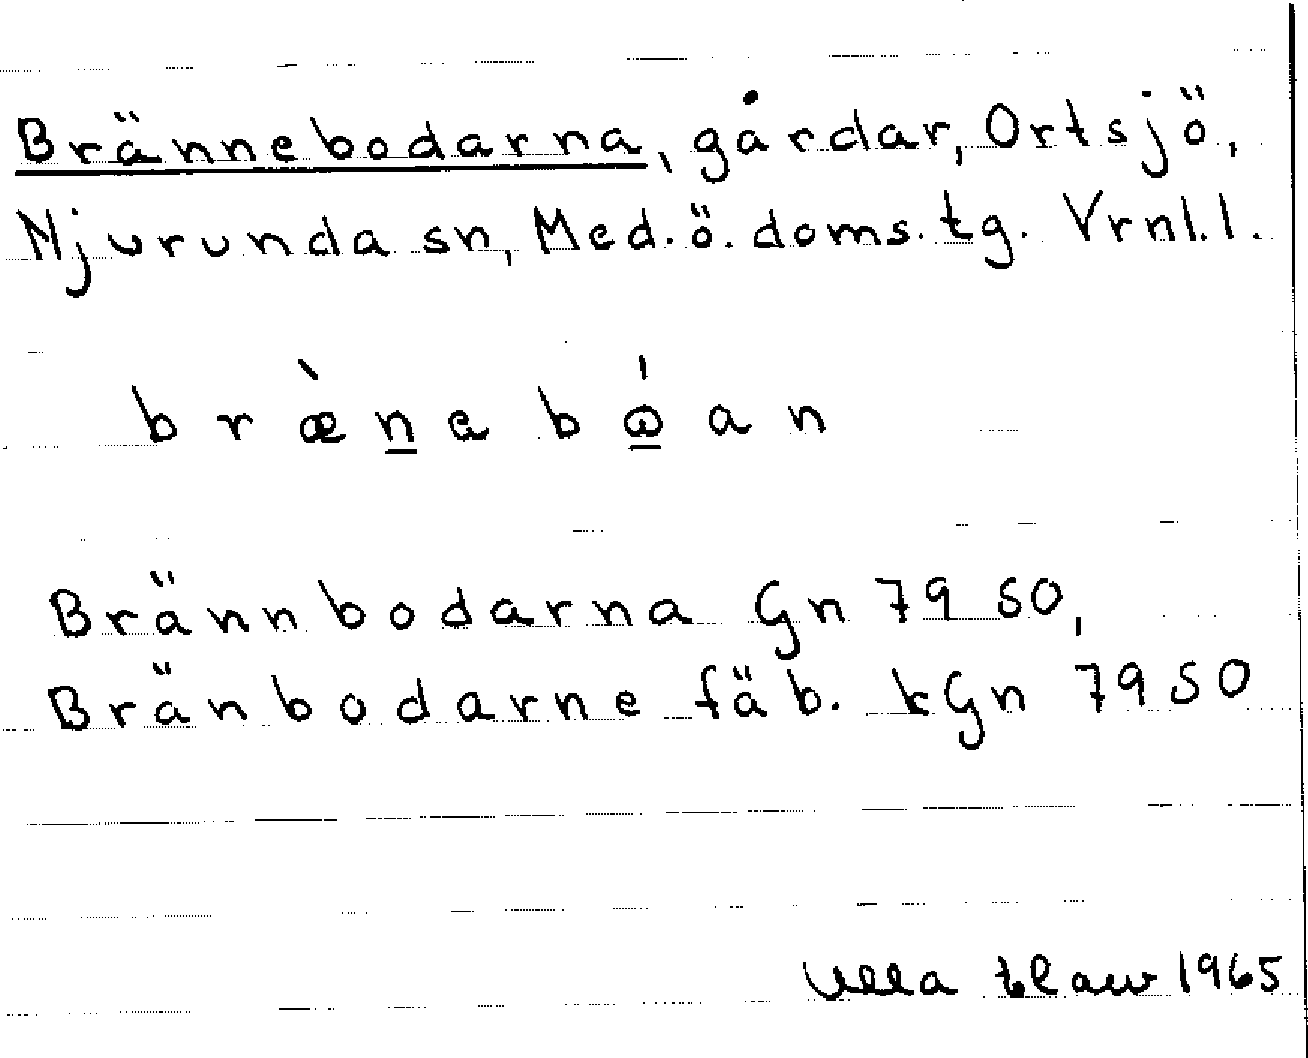 Brännebodarna, gårdar, Ortsjö,
Njurunda sn, Med. ö. doms. tg. Vrnl.l.
bræ̀n̲a bώ̲an
Brännbodarna Gn 79 SO,
Bränbodarne fäb. kGn 79 SO
Ulla 1965